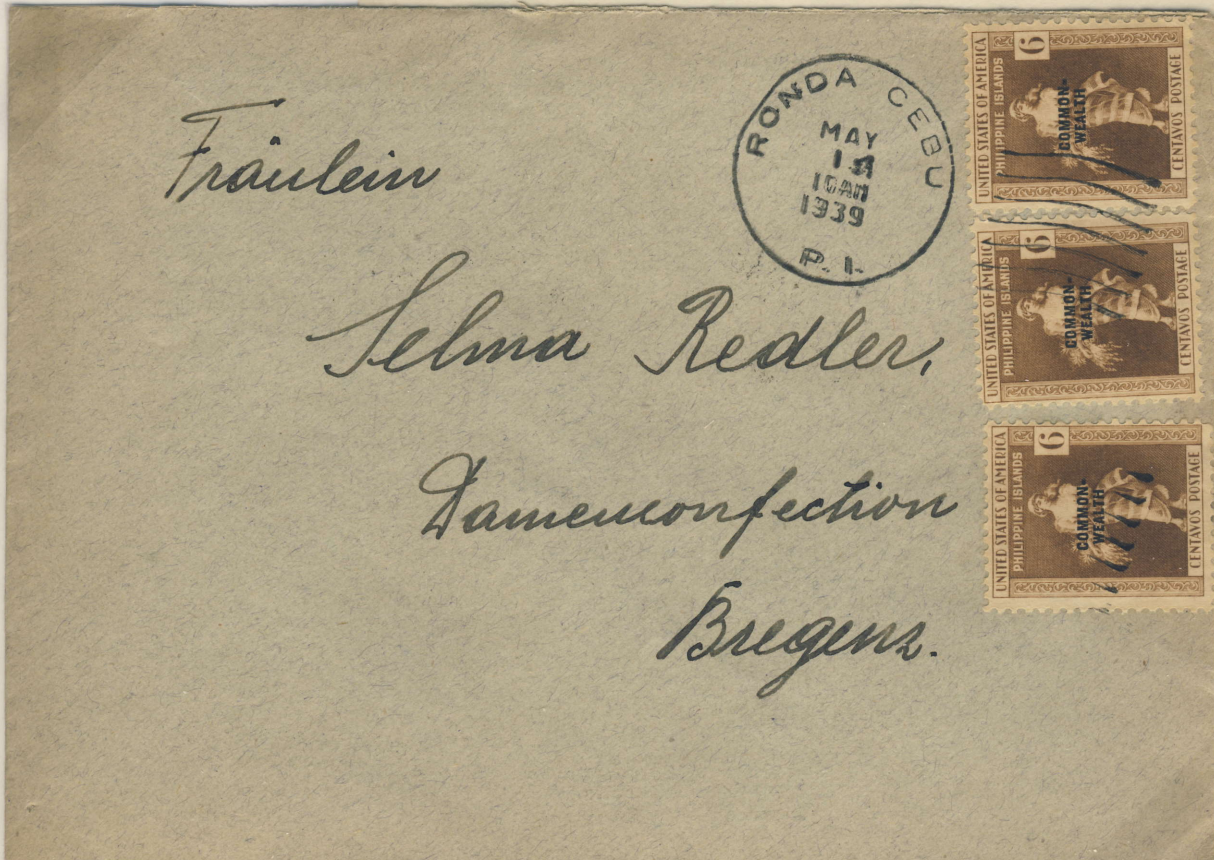 Fräulein
Selma Redler,
Damenconfection
Bregenz.
RONDA CEBU
MAY
10AM
1939
P. I.
UNITED STATES OF AMERICA
PHILIPPINE ISLANDS
6
COMMON-
WEALTH
CENTAVOS POSTAGE
UNITED STATES OF AMERICA
PHILIPPINE ISLANDS
6
COMMON-
WEALTH
CENTAVOS POSTAGE
UNITED STATES OF AMERICA
PHILIPPINE ISLANDS
6
COMMON-
WEALTH
CENTAVOS POSTAGE